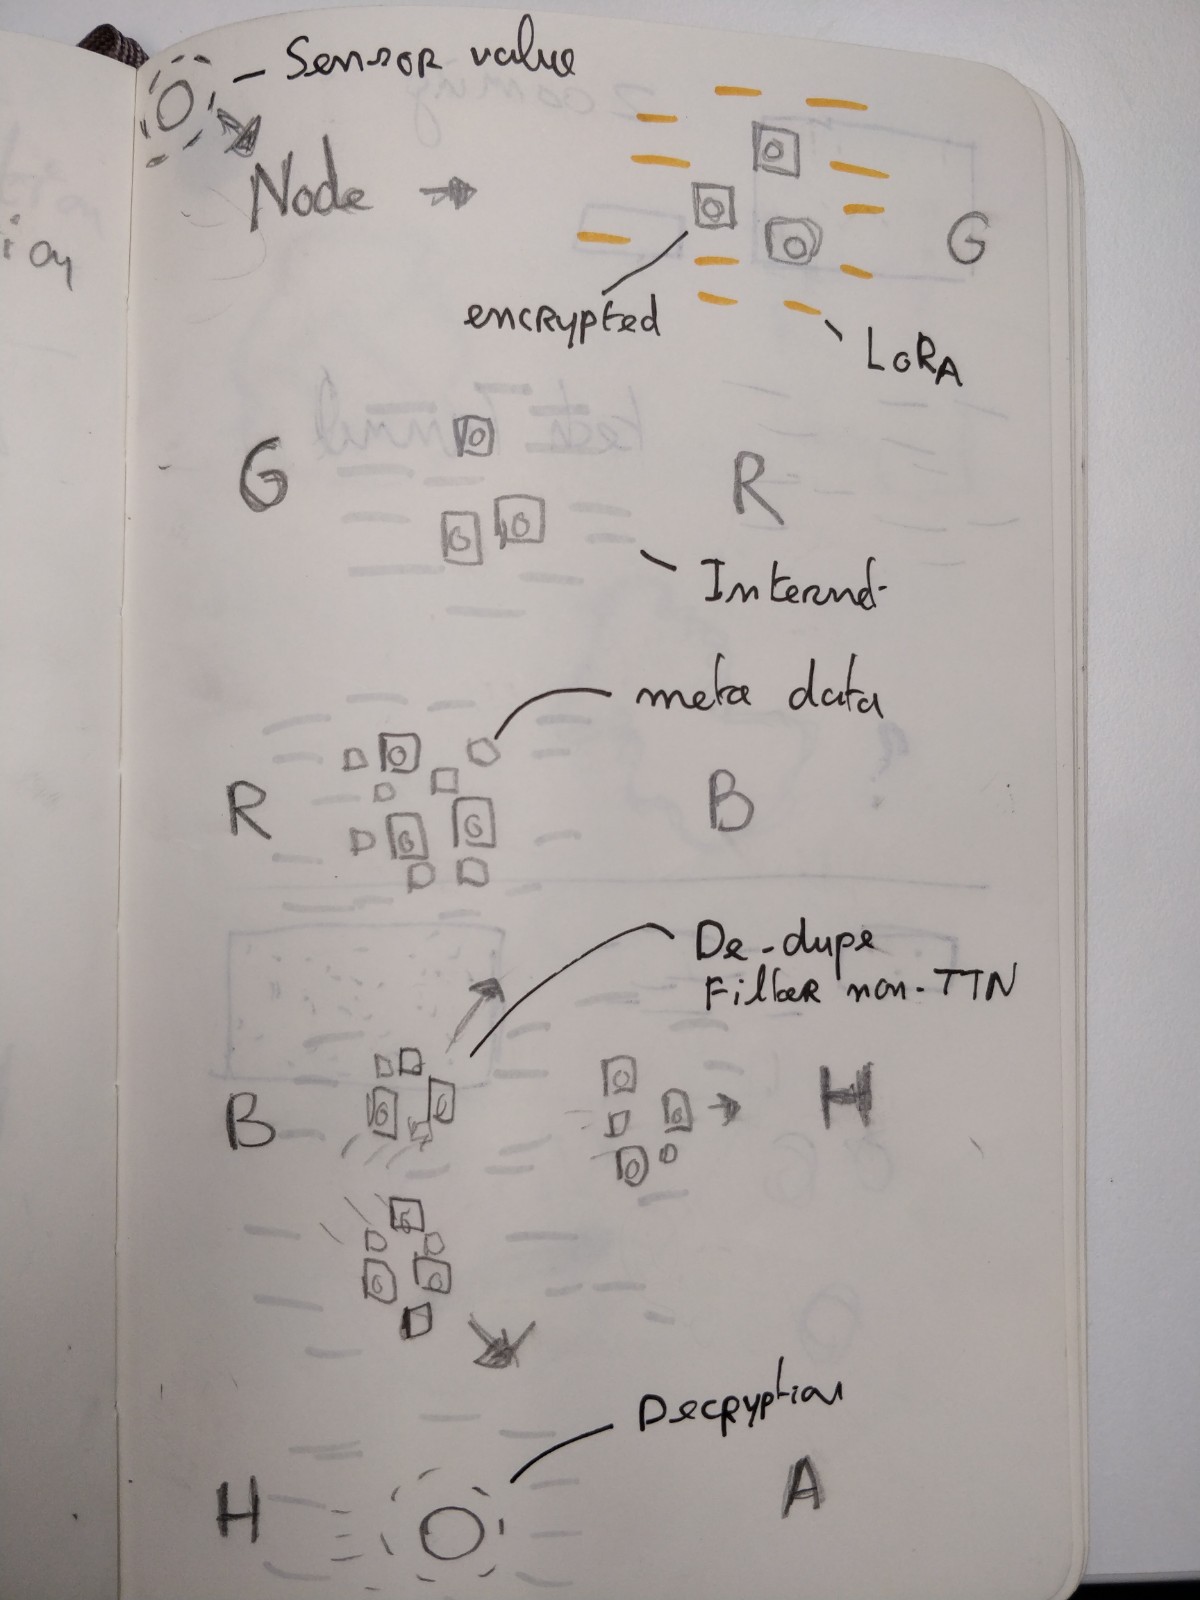 Sensor value
Node
G
encrypted
LoRa
G
R
Internet
meta data
R
B
De-dupe
Filter non-TTN
B
H
Decryption
H
A